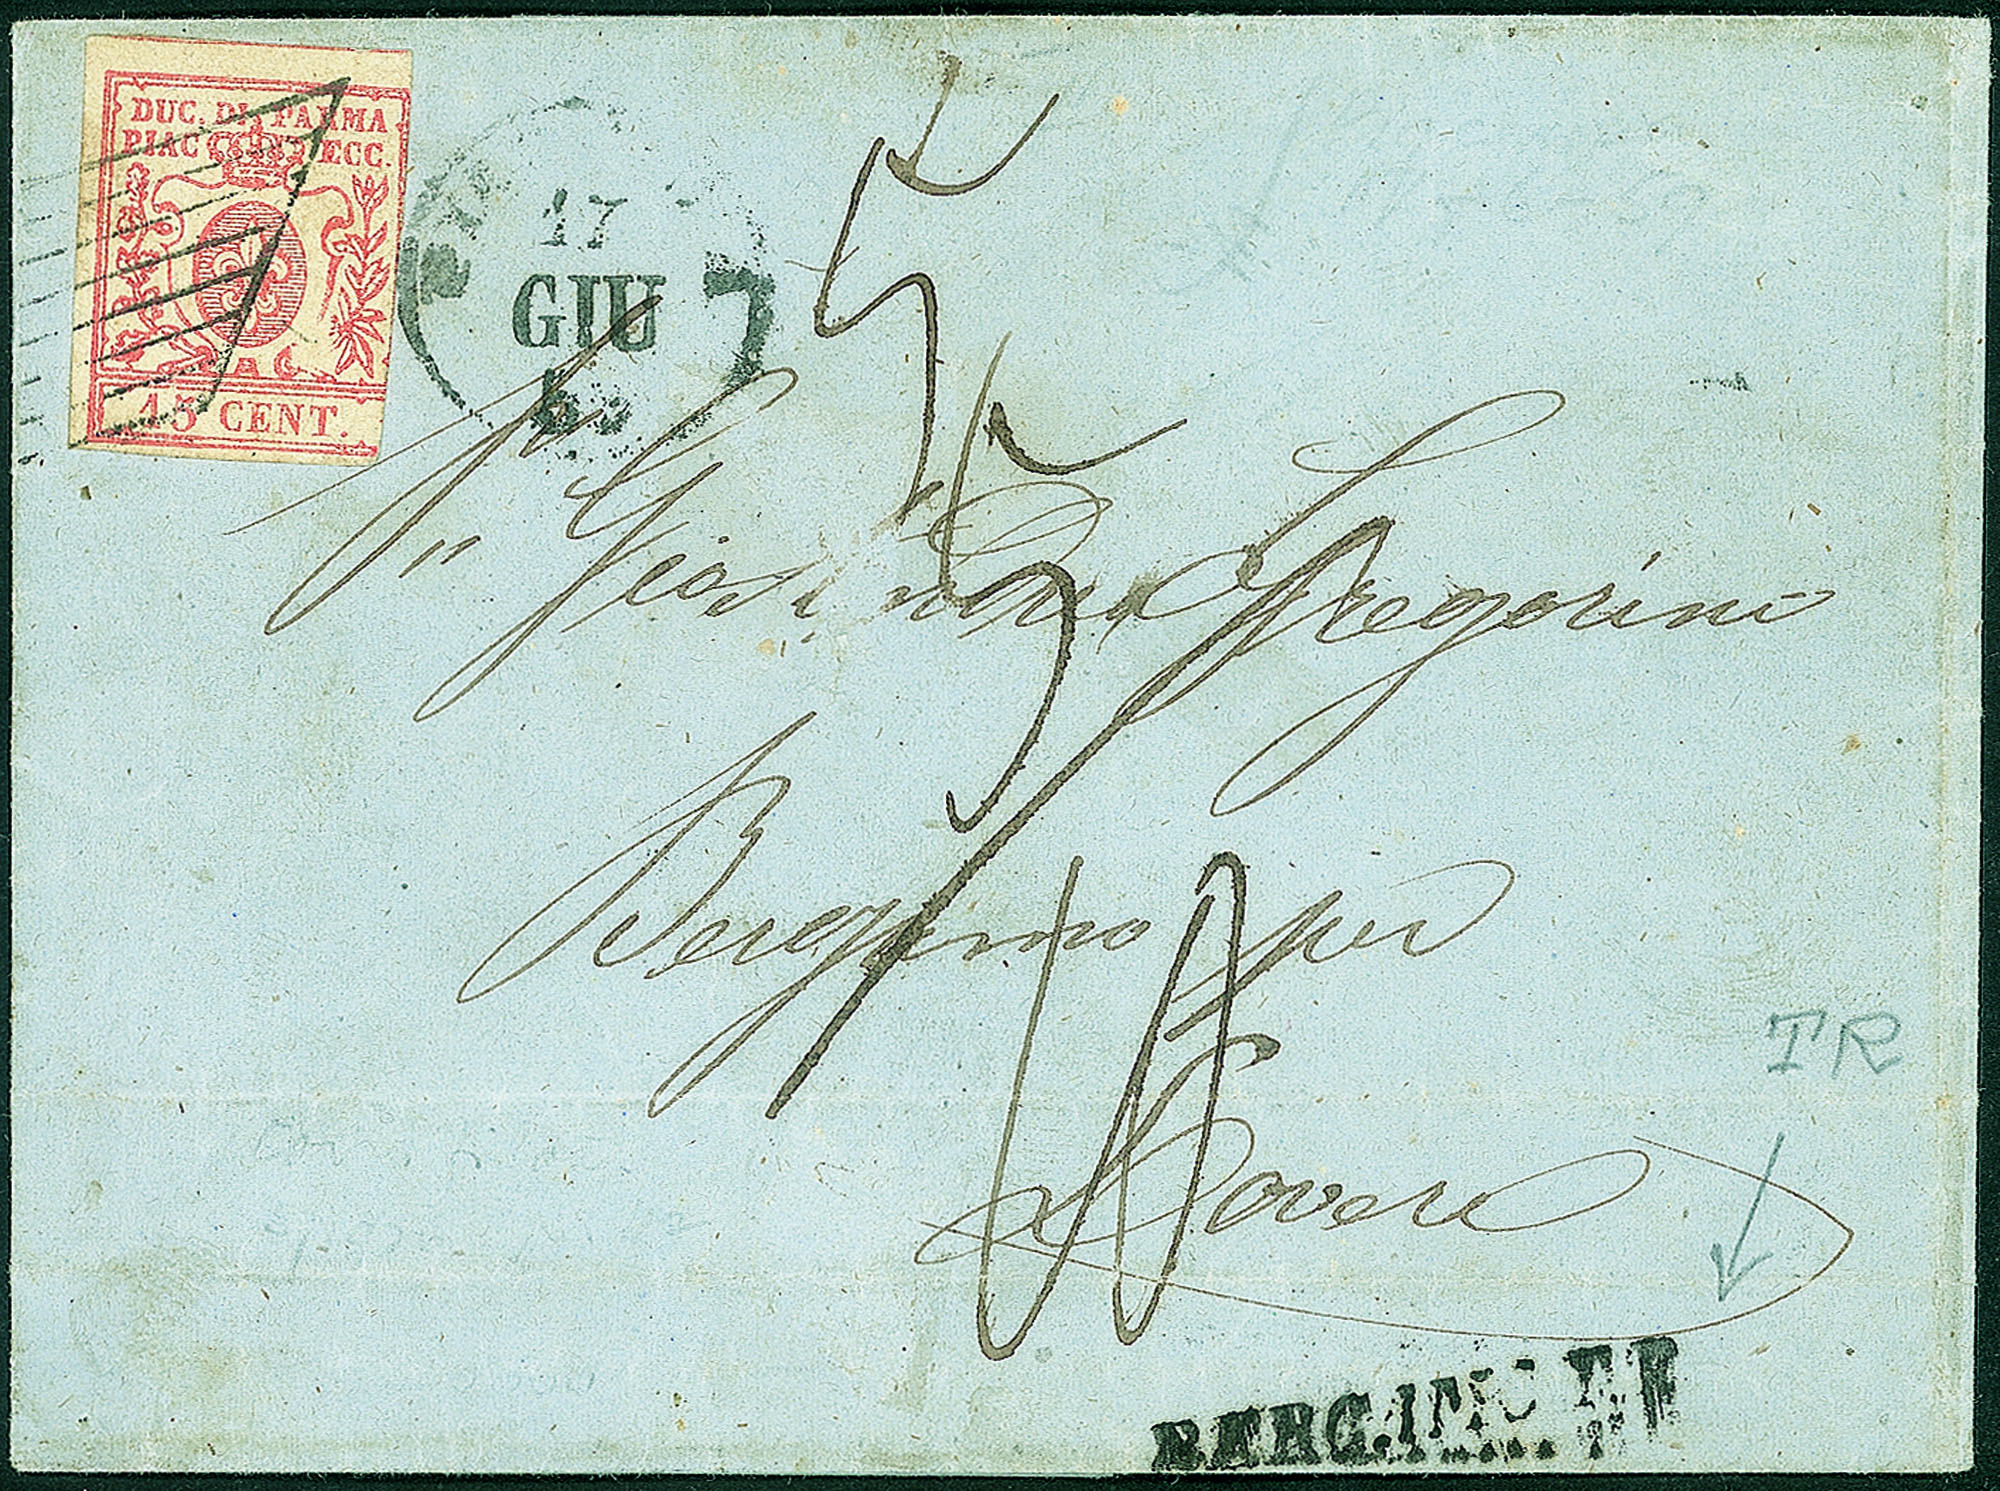 DUC. DI PARMA
PIAC. ECC.
15 CENT.
17
GIU
Giovanni Gregorini
Bergamo per
Lovere
TR
BERGAMO